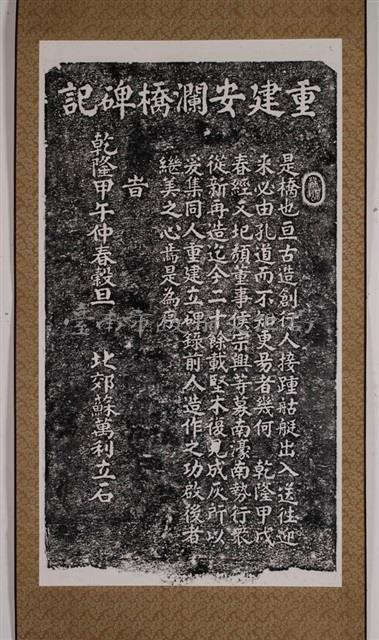 重建安瀾橋碑記
是橋也亘古造創行人接踵艇出入送徃迎
来必由孔道而不知更易者幾何 乾隆甲戌
春經文圯頹董事侯宗興等募南濠南勢行衆
從新再造迄今二十餘載堅木復見成灰所以
爰集同人重建立碑錄前人造作之功啟後者
継美之心焉是為序
旹
乾隆甲午仲春穀旦 北郊蘇萬利立石
臺南市政